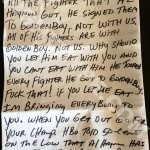 All the Fighters that Al
Haymon Got, He signed them
to Golden Boy. Not with us,
All of His Fighters are with
Golden Boy. Not us. Why should
you let Him Eat with you and
you can't Eat with Him. He took
Every Fighter He Got to Golden Boy
Fuck that! If you let Me Eat
I'm Bringing Everybody to
you. When you get out go for
your change HBO told 50 Cent
on the low that Al Haymon Has